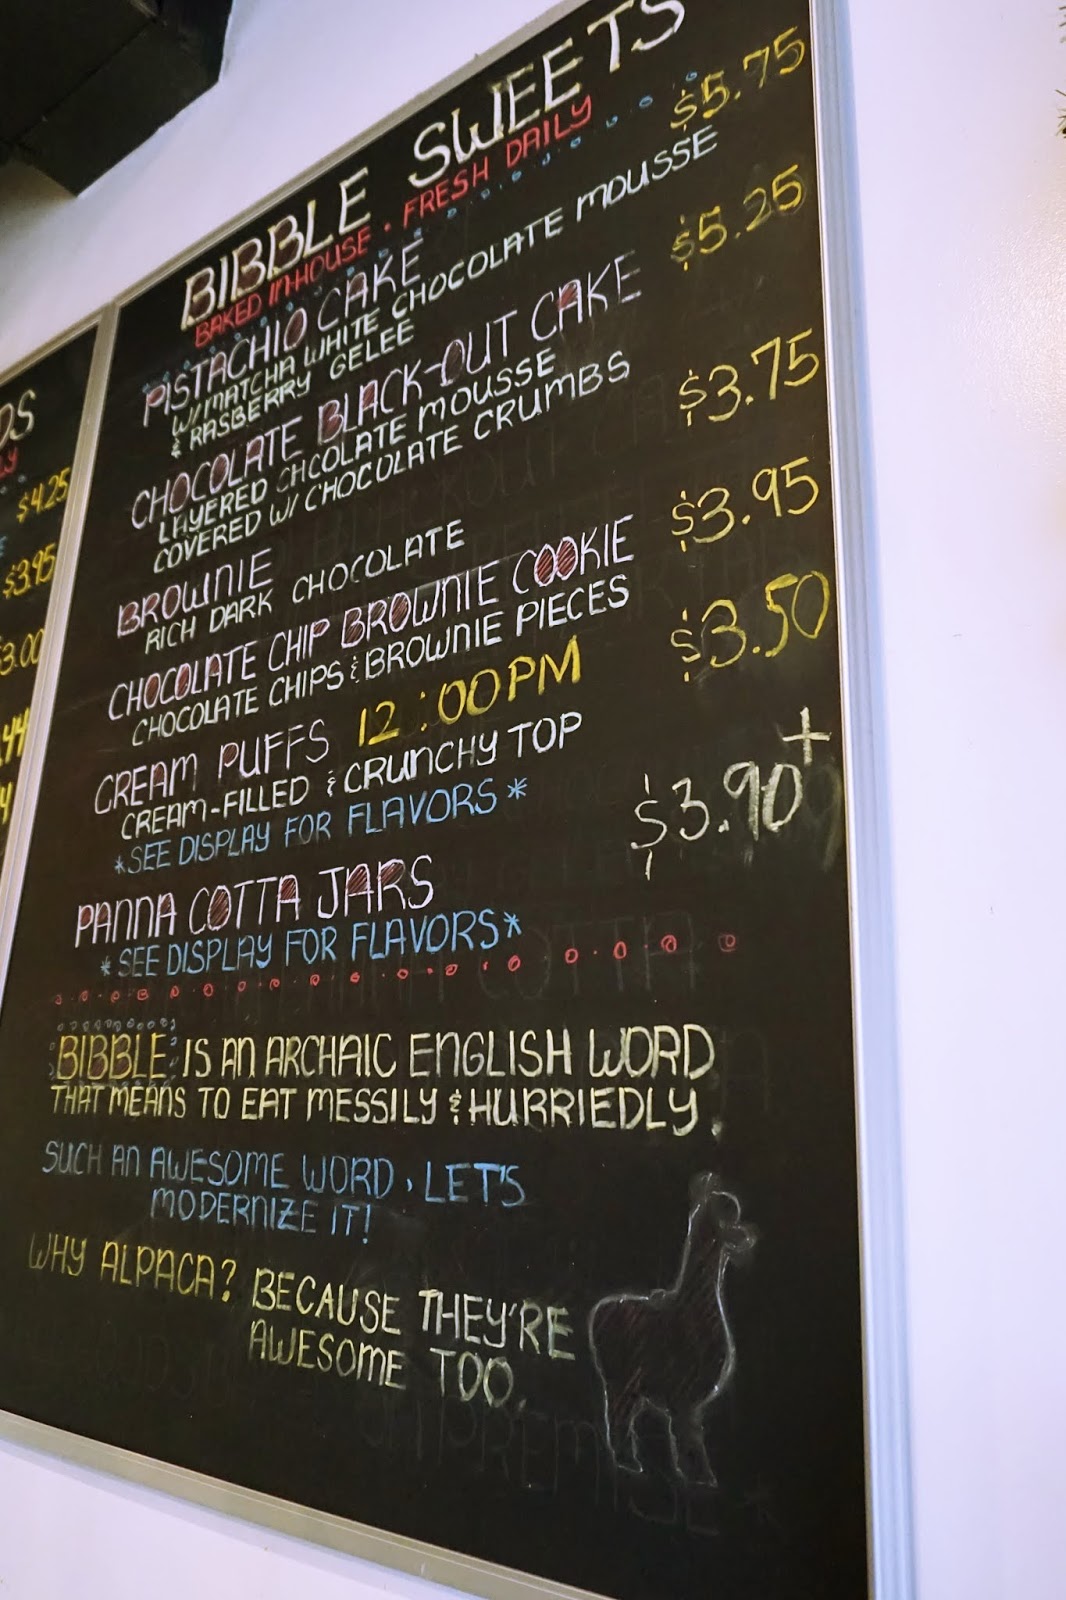 BIBBLE SWEETS
BAKED IN-HOUSE · FRESH DAILY
PISTACHIO CAKE $5.75
W/ MATCHA WHITE CHOCOLATE MOUSSE
& RASBERRY GELEE
CHOCOLATE BLACK-OUT CAKE $5.25
LAYERED CHCOLATE MOUSSE
COVERED W/ CHOCOLATE CRUMBS
BROWNIE $3.75
RICH DARK CHOCOLATE
CHOCOLATE CHIP BROWNIE COOKIE $3.95
CHOCOLATE CHIPS & BROWNIE PIECES
CREAM PUFFS 12:00PM $3.50
CREAM-FILLED & CRUNCHY TOP
*SEE DISPLAY FOR FLAVORS*
PANNA COTTA JARS $3.90+
*SEE DISPLAY FOR FLAVORS*
BIBBLE IS AN ARCHAIC ENGLISH WORD
THAT MEANS TO EAT MESSILY & HURRIEDLY.
SUCH AN AWESOME WORD, LET'S
MODERNIZE IT!
WHY ALPACA? BECAUSE THEY'RE
AWESOME TOO.
$4.25
$3.95